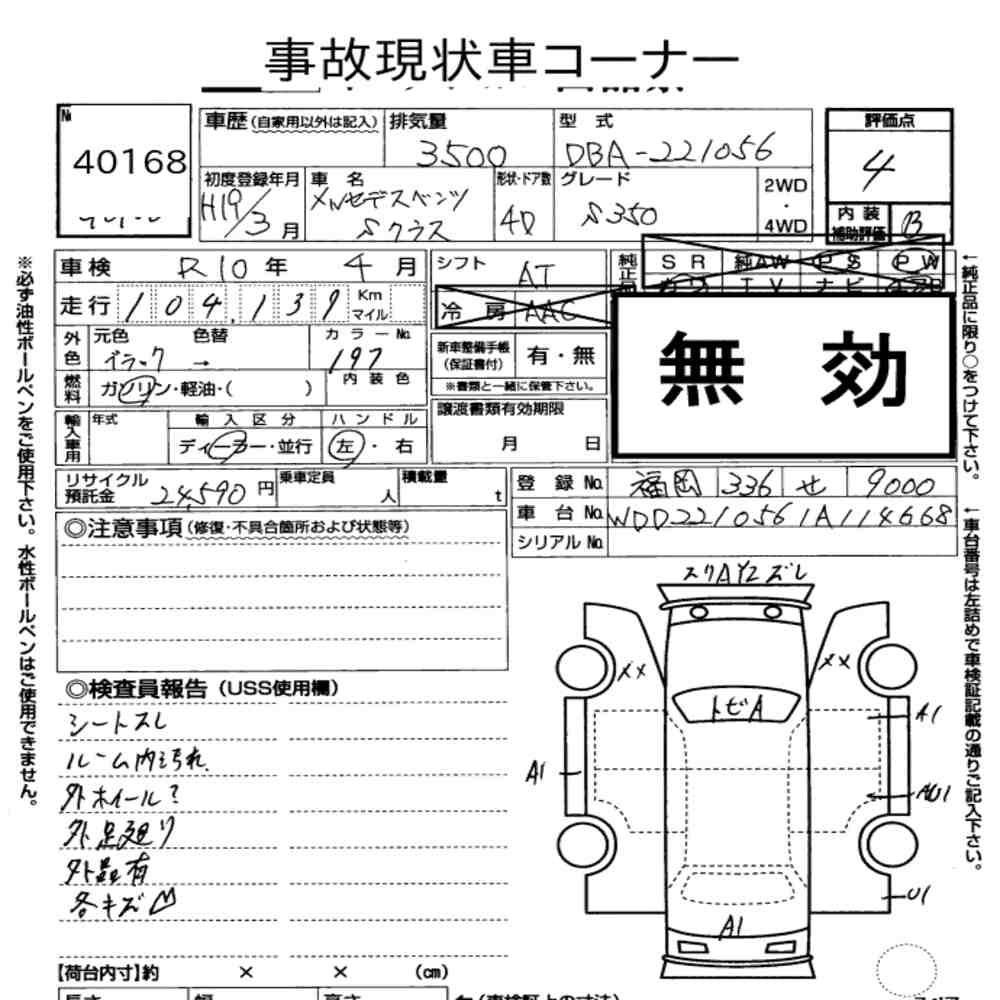 事故現状車コーナー
№
40168
車歴 (自家用以外は記入)
排気量
3500
型 式
DBA-221056
評価点
4
初度登録年月
H19/3月
車 名
メルセデスベンツ
Sクラス
形状・ドア数
4D
グレード
S350
2WD
・
4WD
内 装
補助評価
B
車 検 R10年 4月
シフト
AT
純正
SR 純AW PS PW
カワ TV ナビ
走 行 104,139 Km
マイル
冷 房 AAC
無 効
外色
元色 色替 カラーNo.
ブラック → 197
新車整備手帳
(保証書付)
有・無
※書類と一緒に保管下さい。
燃料
ガソリン・軽油・( )
内 装 色
輸入車用
年式
輸 入 区 分
ハ ン ド ル
ディーラー・並行
左・右
譲渡書類有効期限
月 日
リサイクル
預託金
24,590円
乗車定員
人
積載量
t
登 録 No. 福岡 336 せ 9000
車 台 No. WDD2210561A114668
シリアル No.
◎注意事項 (修復・不具合箇所および状態等)
◎検査員報告 (USS使用欄)
シートスレ
ルーム内ヨゴれ
外ホイール?
外足廻り
外品有
各キズ凹
【荷台内寸】約 × × (cm)
長さ 幅 高さ
スリAY2ズレ
XX
XX
トビA
A1
A1
AU1
U1
A1
※必ず油性ボールペンをご使用下さい。水性ボールペンはご使用できません。
←純正品に限り○をつけて下さい。
←車台番号は左詰めで車検証記載の通りご記入下さい。